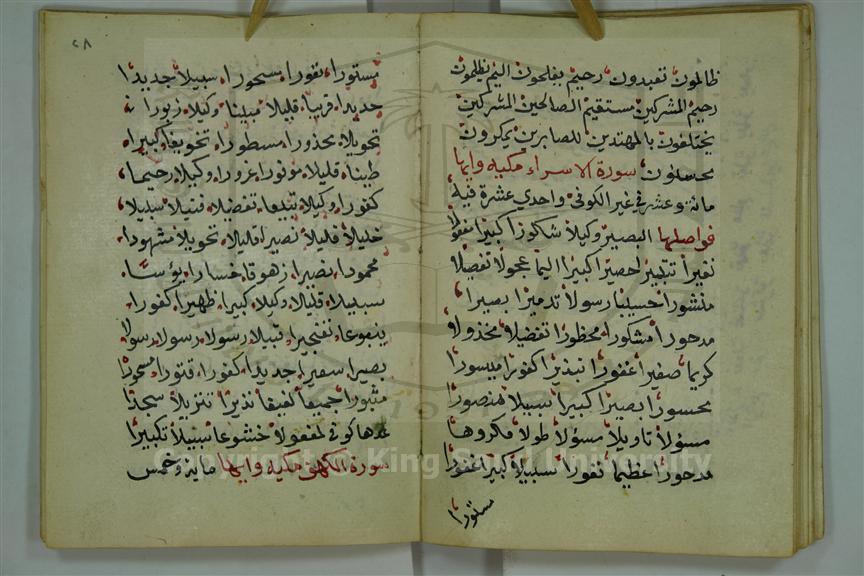 ظالمون تعبدون رحيم يفلحون اليم يظلمون
رحيم المشركين مستقيم الصالحين المشركين
يختلفون بالمهتدين للصابرين يمكرون
محسنون سورة الاسراء مكية وايها
مائة وعشر في غير الكوفي واحدي عشرة فيه
فواصلها البصير وكيلا شكورا كبيرا مفعولا
نفيرا تتبيرا حصيرا كبيرا اليما عجولا تفصيلا
منشورا حسيبا رسولا تدميرا بصيرا
مدحورا مشكورا محظورا تفضيلا مخذولا
كريما صغيرا غفورا تبذيرا كفورا ميسورا
محسورا بصيرا كبيرا سبيلا منصورا
مسؤلا تاويلا مسؤلا طولا مكروها
مدحورا عظيما نفورا سبيلا كبيرا غفورا
مستورا
٢٨
مستورا نفورا مسحورا سبيلا جديدا
حديدا قريبا قليلا مبينا وكيلا زبورا
تحويلا محذورا مسطورا تخويفا كبيرا
طينا قليلا موفورا غرورا وكيلا رحيما
كفورا وكيلا تبيعا تفضيلا فتيلا سبيلا
خليلا قليلا نصيرا قليلا تحويلا مشهودا
محمودا نصيرا زهوقا خسارا يؤسا
سبيلا قليلا وكيلا كبيرا ظهيرا كفورا
ينبوعا تفجيرا قبيلا رسولا رسولا رسولا
بصيرا سعيرا جديدا كفورا قتورا مسحورا
مثبورا جميعا لفيفا نذيرا تنزيلا سجدا
عدها كوفي لمفعولا خشوعا سبيلا تكبيرا
سورة الكهف مكية وايها ماية وخمس
Copyright © King Saud University